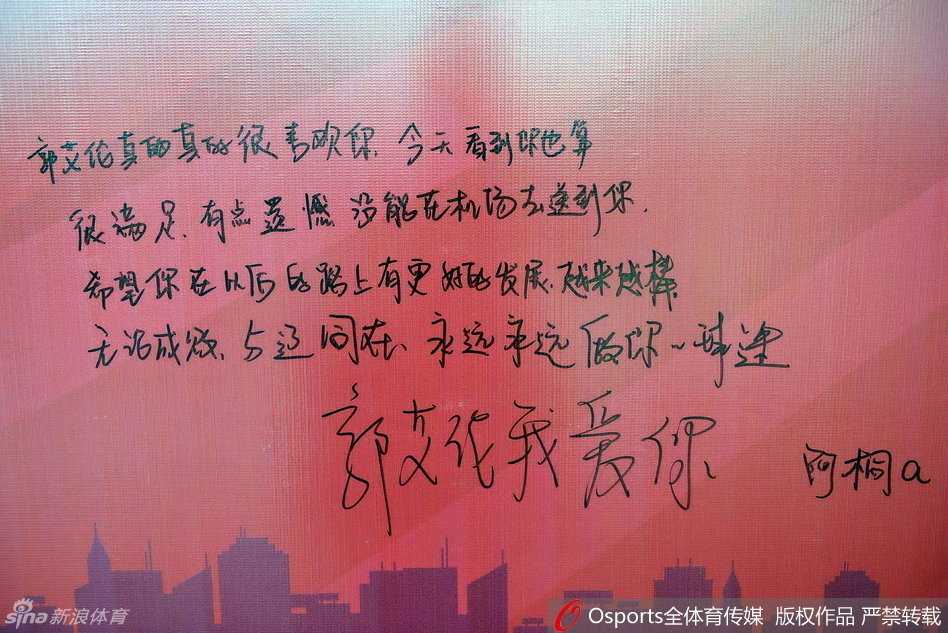 郭艾伦真的真的很喜欢你.今天看到你也算
很满足.有点遗憾 没能在机场去送到你.
希望你在以后的路上有更好的发展.越来越棒
无论成败、与辽同在、永远永远做你~球迷
郭艾伦我爱你.
阿桐a
sina新浪体育
Osports全体育传媒 版权作品 严禁转载